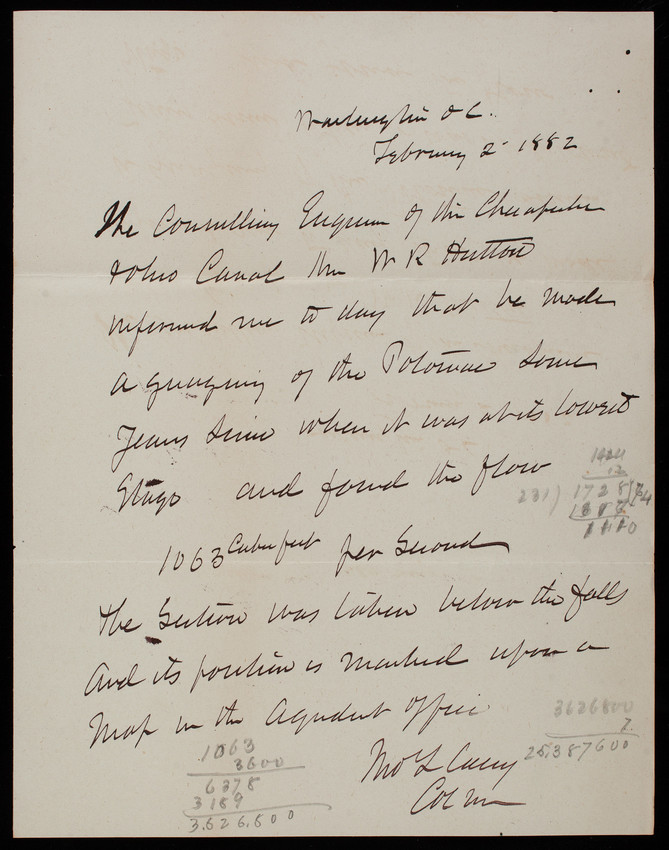 Washington D C.
February 2 - 1882
The Consulting Engineer of the Chesapeake
& Ohio Canal Mr W R Hutton
informed me to day that he made
a guaging of the Potomac some
years since when it was at its lowest
stage and found the flow
1063 Cubic feet per Second
The Section was taken below the falls
and its position is marked upon a
Map in the Aqueduct Office
Thos L Casey
Col
12
231) 1728 (7
1063
3600
6378
3189
3,826,800
3826800
7
25,387600